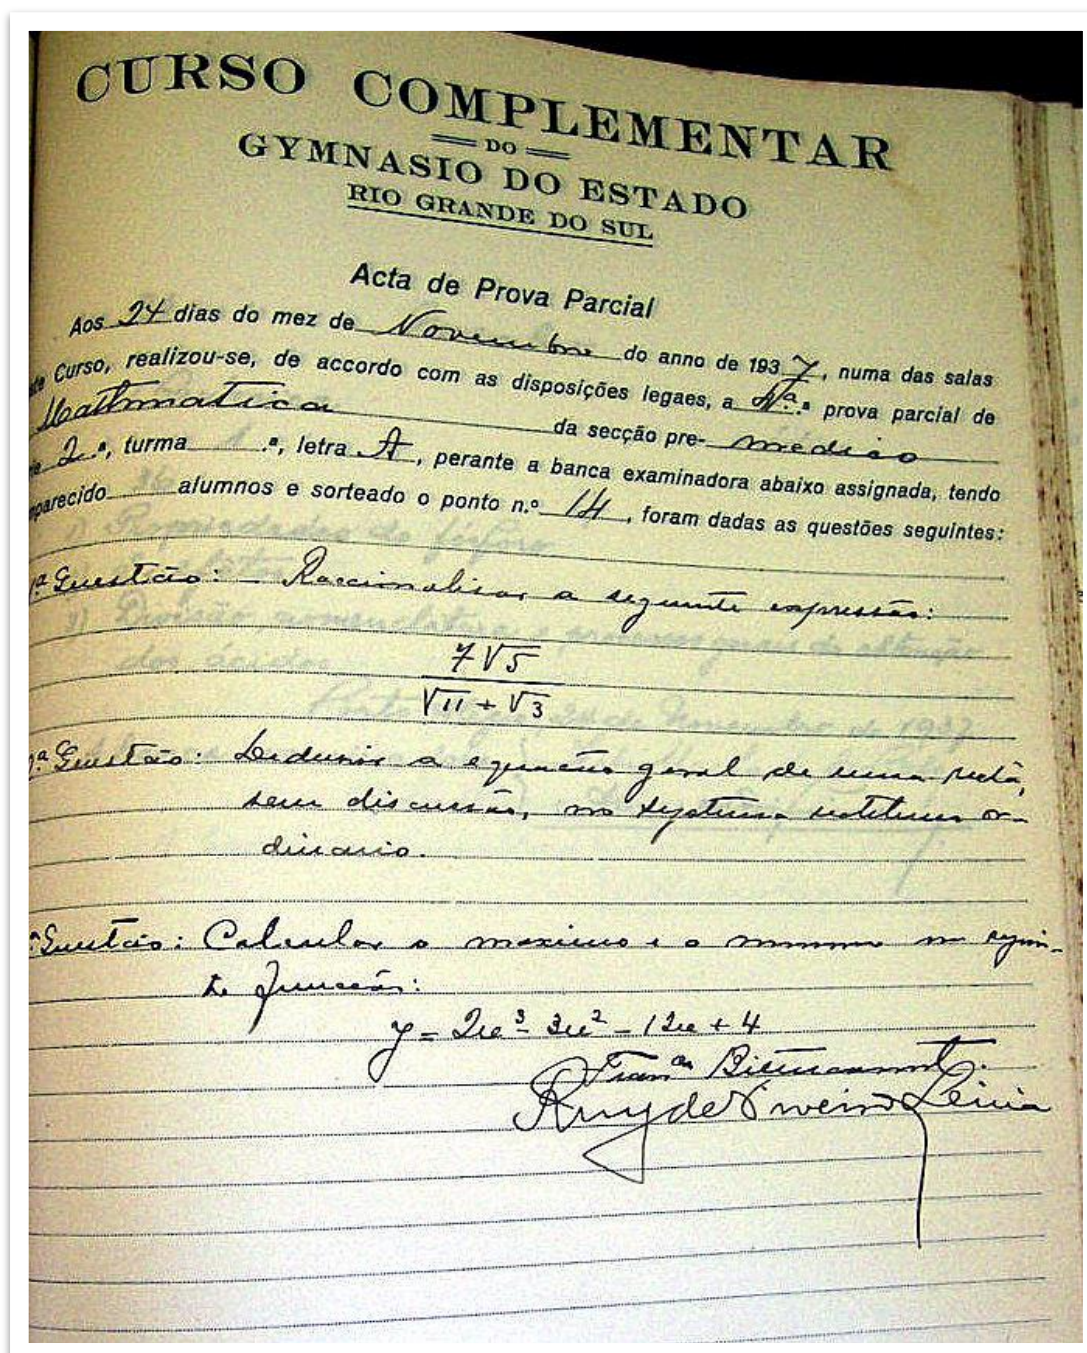 CURSO COMPLEMENTAR
DO
GYMNASIO DO ESTADO
RIO GRANDE DO SUL
Acta de Prova Parcial
Aos 24 dias do mez de Novembro do anno de 1937, numa das salas
Curso, realizou-se, de accordo com as disposições legaes, a ª prova parcial de
Mathmatica da secção pre- medico
2.ª, turma 1.ª, letra A, perante a banca examinadora abaixo assignada, tendo
alumnos e sorteado o ponto n.º 14, foram dadas as questões seguintes:
1ª Questão: Raccionalisar a seguinte expressão:
7√5
√11 + √3
2ª Questão: Deduzir a equação geral de uma recta,
sem discussão, no systema or-
dinario.
Questão: Calcular o maximo e o minimo na seguin-
te funcção:
y = 2x³ - 3x² - 12x + 4
Ruy de